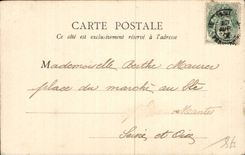 CARTE POSTALE
Ce côté est exclusivement réservé à l'adresse
Mademoiselle Berthe Maurer
place du marché au blé
Mantes
Seine et Oise